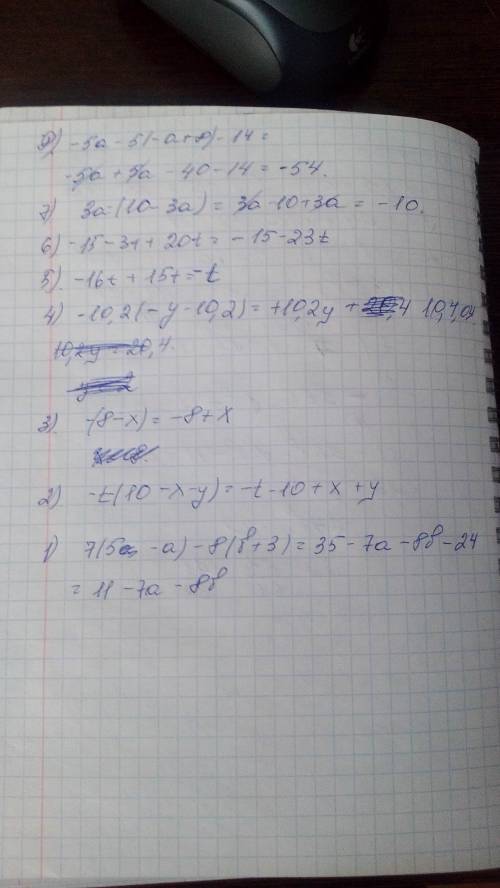 8) -5a - 5(-a+8) - 14 =
-5a + 5a - 40 - 14 = -54.
7) 3a-(10-3a) = 3a-10+3a = -10.
6) -15-3t+20t = -15-23t
5) -16t + 15t = -t
4) -10,2(-y-10,2) = +10,2y +
10,2y = 20,4.
3) -(8-x) = -8+x
2) -t(10-x-y) = -t-10+x+y
1) 7(5-a)-8(b+3) = 35-7a-8b-24
= 11-7a-8b